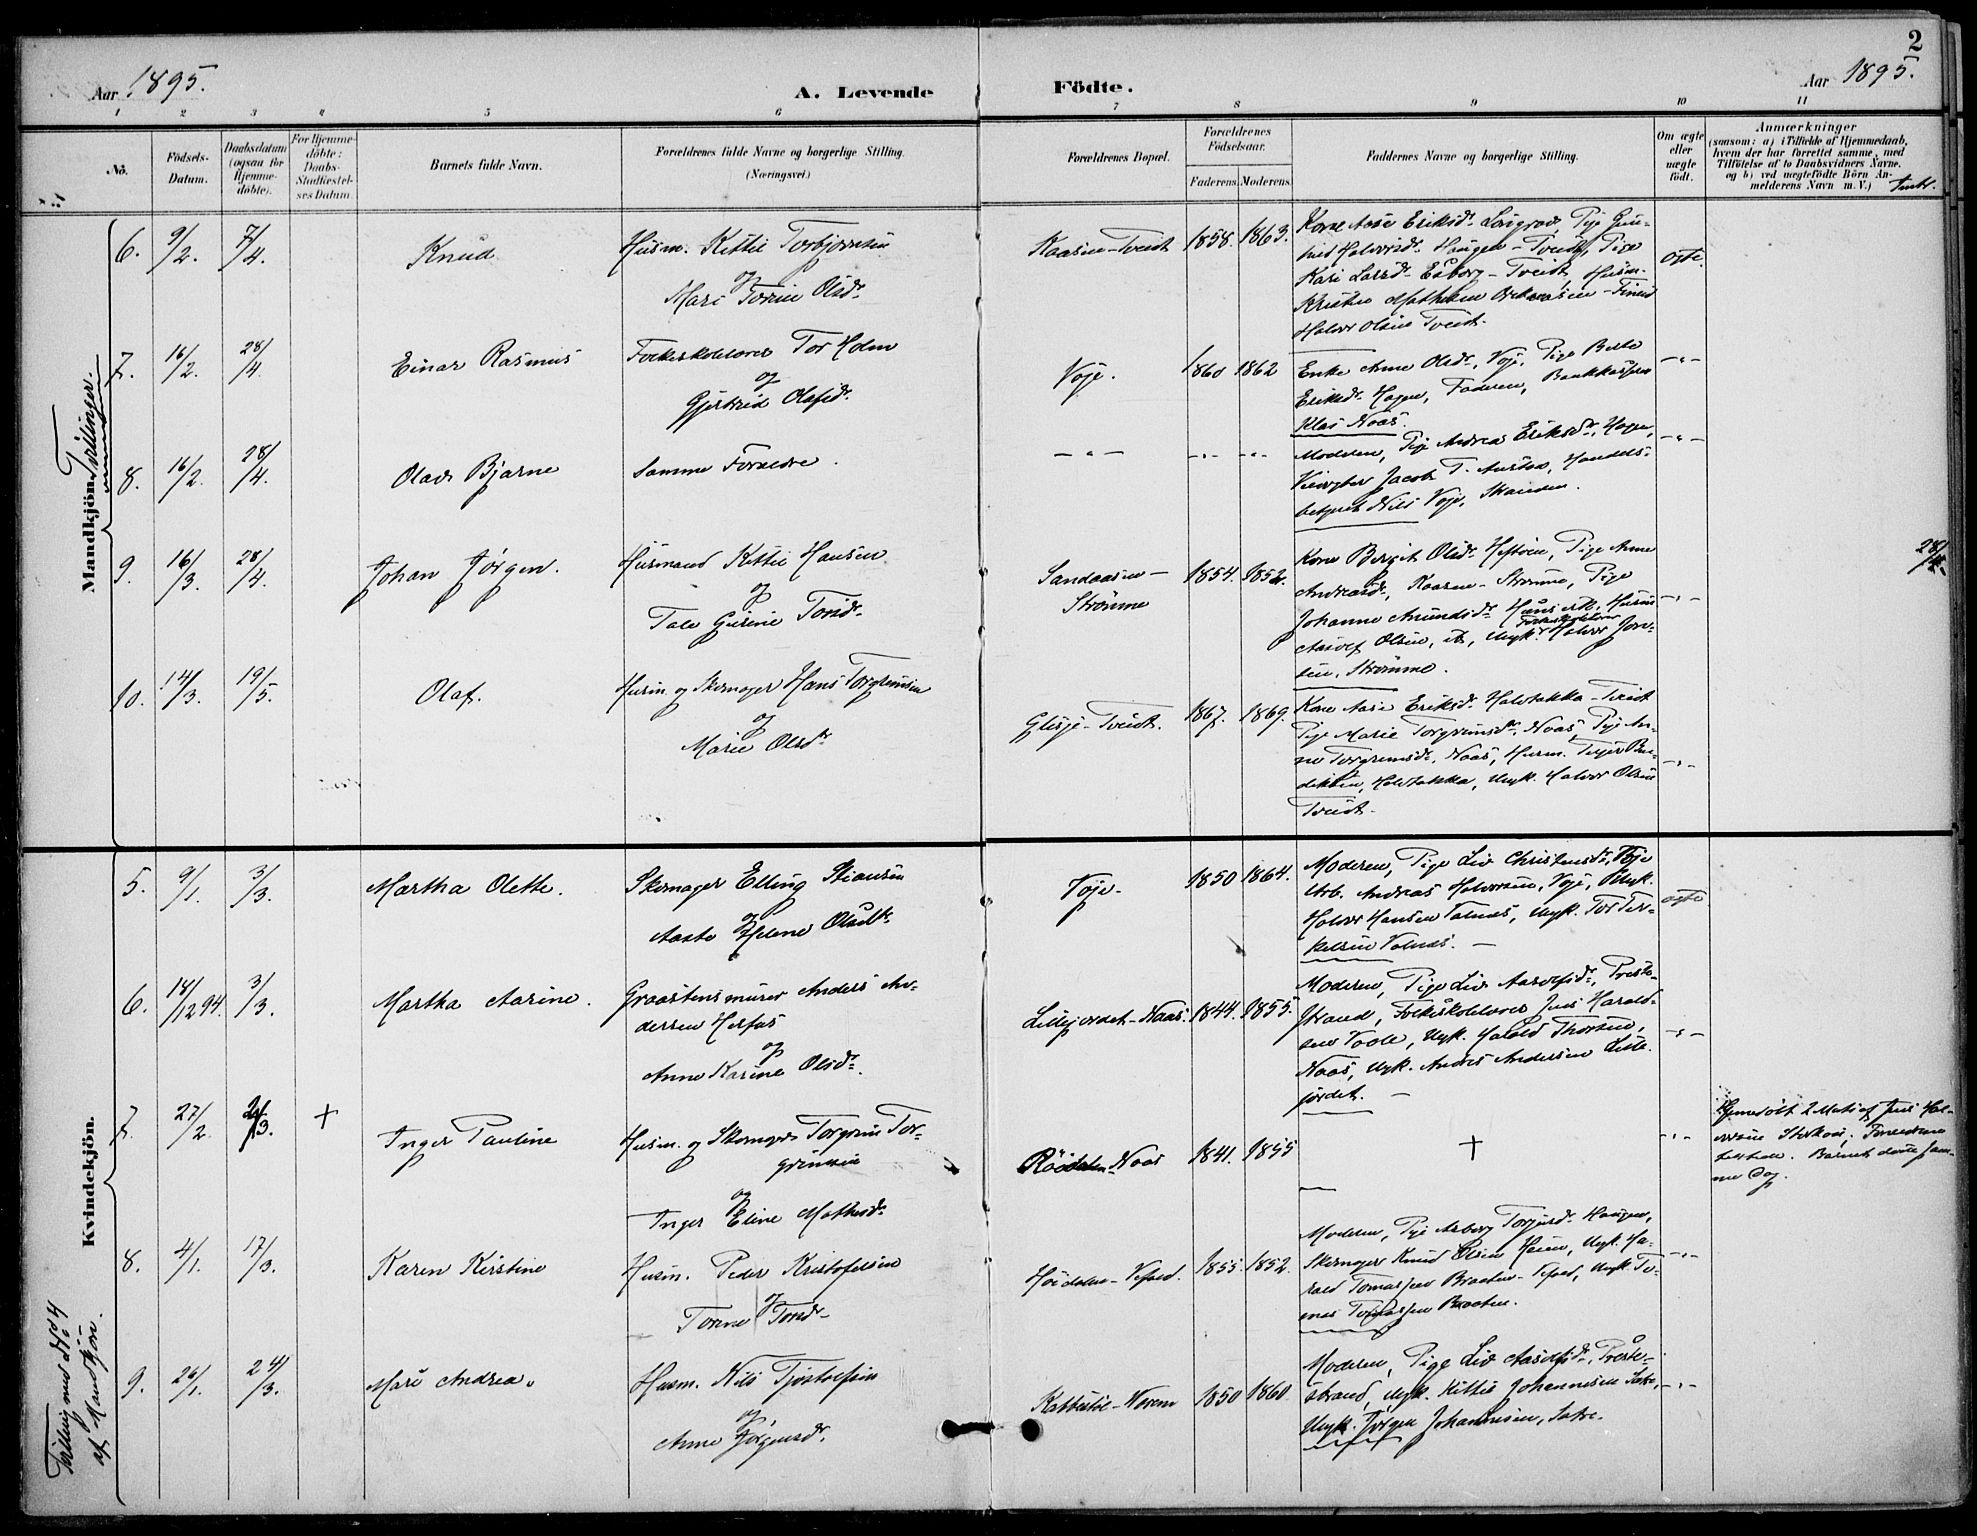 2
Aar 1895.
A. Levende Födte.
Aar 1895.
1 2 3 4 5 6 7 8 9 10 11
No.
Födsels-Datum.
Daabsdatum (ogsaa for Hjemme-döbte).
For Hjemme-döbte: Daabs-Stadfæstel-ses Datum.
Barnets fulde Navn.
Forældrenes fulde Navne og borgerlige Stilling.
(Næringsvei.)
Forældrenes Bopæl.
Forældrenes Födselsaar.
Faderens. Moderens.
Faddernes Navne og borgerlige Stilling.
Om ægte eller uægte födt.
Anmærkninger
(saasom: a) i Tilfælde af Hjemmedaab, hvem der har forrettet samme, med Tilföielse af to Daabsvidners Navne, og b) ved uægtefödte Börn Anmelderens Navn m. V.)
Mandkjön.
Tvillinger.
6. 9/2. 7/4. Knud
Husm. Kittil Torbjørnsen
og
Mari Torine Olsdr.
Kaasen-Tveidt 1858. 1863.
Kari Larsdr. Esborg-Tveidt, Husm.
Halvor Olsen Tveidt.
ægte.
7. 16/2. 28/4. Einar Rasmus
Folkeskolelærer Tor Holm
og
Gjertrud Olafsdr.
Voje. 1860 1862
Enke Anne Olsdr., Voje, Pige Berte
Eriksdr. Hagen, Faderen, Bankkasserer
Klas Naas.
-"-
8. 16/2. 28/4. Olav Bjarne
Samme Forældre.
-"- -"- -"-
Moderen, Pige Andrea Eriksdr., Hagen,
betjent Nils Voje, Stranden.
-"-
9. 16/3. 28/4. Johan Jørgen.
Husmand Kittil Hansen
og
Tale Gurine Torsdr.
Sandaasen-
Strømme
1854. 1852.
Kone Bergit Olsdr. Heftøen, Pige Anne
Andreasdr., Kaasen-Strømme, Pige
Folkeskolelærer
Aasolf Olsen, ib., Ungk. Halvor Jen-
sen, Strømme.
-"-
28/4.
10. 14/3. 19/5. Olaf.
Husm. og Skomager Hans Torgrimsen
og
Marie Olsdr.
Glesje-Tveidt. 1867. 1869.
Kone Aase Eriksdr. Holtebakka-Tveidt
Pige Marie Torgrimsdr., Naas, Pige An-
ne Torgrimsdr., Naas, Husm. Terjer Ben-
diktsen, Holtebakka, Ungk. Halvor Olsen
Tveidt.
-"-
Kvindekjön.
5. 9/1. 3/3. Martha Olette.
Skomager Elling Stiansen
og
Aaste Helene Olsdtr.
Voje. 1850 1864.
Moderen, Pige Liv Christensdr., Voje
Arb. Andreas Halvorsen, Voje, Ungk.
Halvor Hansen Valnæs, Ungk. Tor Ter-
kelsen Valnæs.
ægte
6. 14/12 94. 3/3. Martha Aasine.
Graastensmurer Anders An-
dersen Herfos
og
Anne Karine Olsdr.
Lillejordet-Naas. 1844. 1855.
Moderen, Pige Liv Aasolfsdr., Preste-
strand, Folkeskolelærer Jens Harald-
sen Voole, Ungk. Harald Thorsen,
Naas, Ungk. Anders Andersen Lille-
jordet.
-"-
7. 27/2. + Inger Pauline
Husm. og Skomager Torgrim Tor-
grimsen
og
Inger Eline Mathisdr.
Røódalen-Naas 1841. 1855
+
-"-
Hjemmedøbt 2 Marts af Jens Hal-
vorsen; Forældrene
tilstede. Barnet døde sam-
me Dag.
8. 4/1. 17/3. Karen Kirstine
Husm. Peder Kristofersen
og
Torine Torsdr.
Høidalen-Vefald. 1855. 1852.
Moderen, Pige Asborg Torjusdr. Haugen,
Skomager Knud Olsen Heien, Ungk. Ha-
rald Tomassen Braaten-Vefald, Ungk. To-
mas Tomassen Braaten.
-"-
Tvilling med No 4
af Mandkjön.
9. 26/1. 24/3. Mari Andrea.
Husm. Nils Tjostolfsen
og
Anne Jørgensdr.
Kabbestil-Vorem 1850 1860.
Moderen, Pige Liv Aasolfsdr., Preste-
strand, Ungk. Kittil Johannesen Sætre,
Ungk. Jørgen Johannesen, Sætre.
-"-